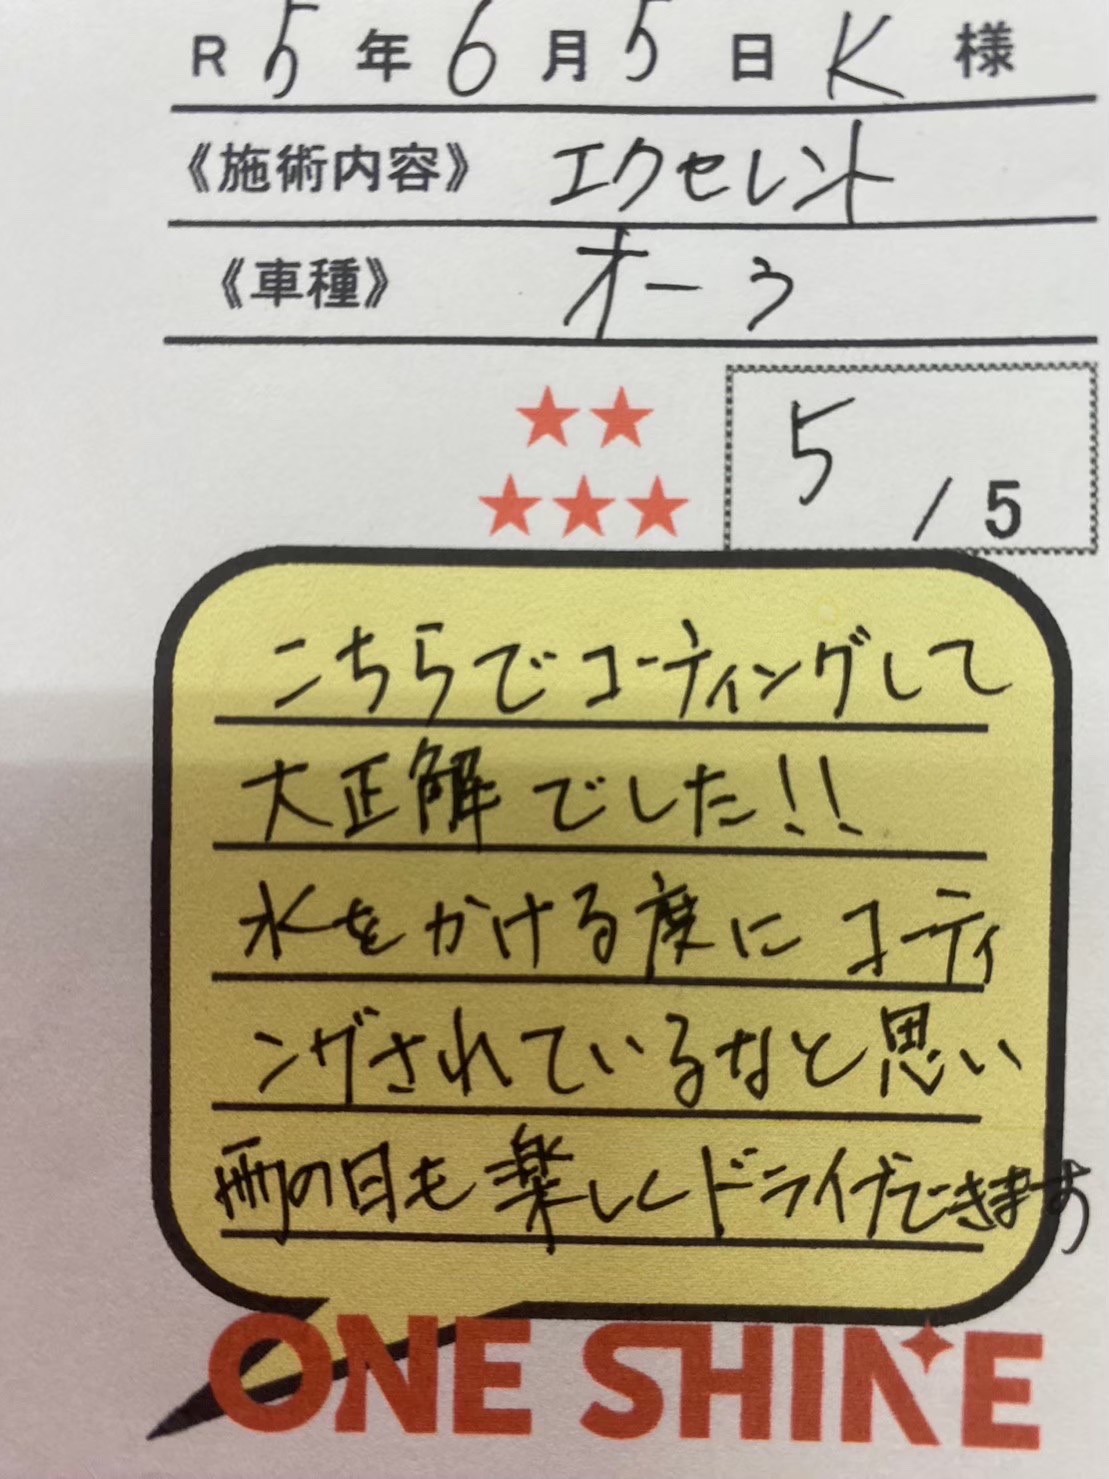 R 5 年 6 月 5 日 K 様
《施術内容》 エクセレント
《車種》 オーラ
★★
★★★
5 / 5
こちらでコーティングして
大正解でした!!
水をかける度にコーティ
ングされているなと思い
雨の日も楽しくドライブできます
ONE SHINE